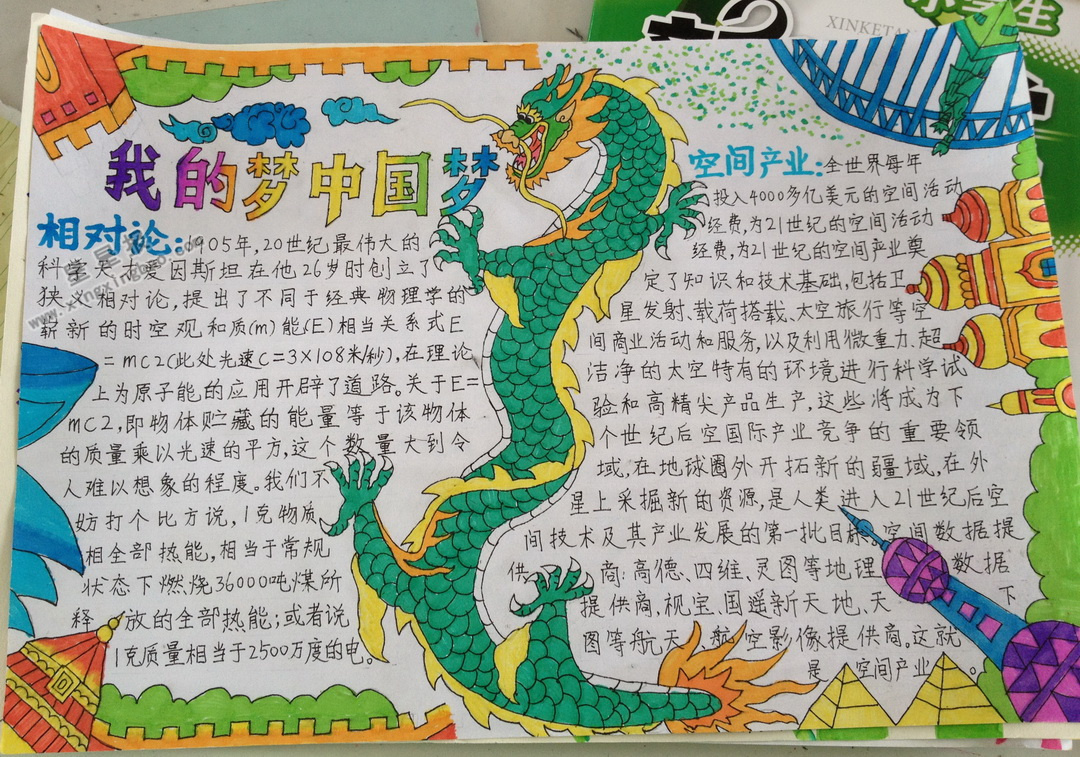 小学生
XINKETA
我的梦中国梦
相对论:1905年,20世纪最伟大的
科学家爱因斯坦在他26岁时创立了
狭义相对论,提出了不同于经典物理学的
崭新的时空观和质(m)能(E)相当关系式E
=mC2(此处光速C=3×108米/秒),在理论
上为原子能的应用开辟了道路。关于E=
mC2,即物体贮藏的能量等于该物体
的质量乘以光速的平方,这个数量大到令
人难以想象的程度。我们不
妨打个比方说,1克物质
相全部热能,相当于常规
状态下燃烧36000吨煤所
释放的全部热能;或者说
1克质量相当于2500万度的电。
空间产业:全世界每年
投入4000多亿美元的空间活动
经费,为21世纪的空间活动
经费,为21世纪的空间产业奠
定了知识和技术基础,包括卫
星发射、载荷搭载、太空旅行等空
间商业活动和服务,以及利用微重力、超
洁净的太空特有的环境进行科学试
验和高精尖产品生产,这些将成为下
个世纪后空国际产业竞争的重要领
域,在地球圈外开拓新的疆域,在外
星上采掘新的资源,是人类进入21世纪后空
间技术及其产业发展的第一批目标。空间数据提
供商:高德、四维、灵图等地理数据
提供商,视宝、国遥新天地、天下
图等航天、航空影像提供商。这就
是空间产业。